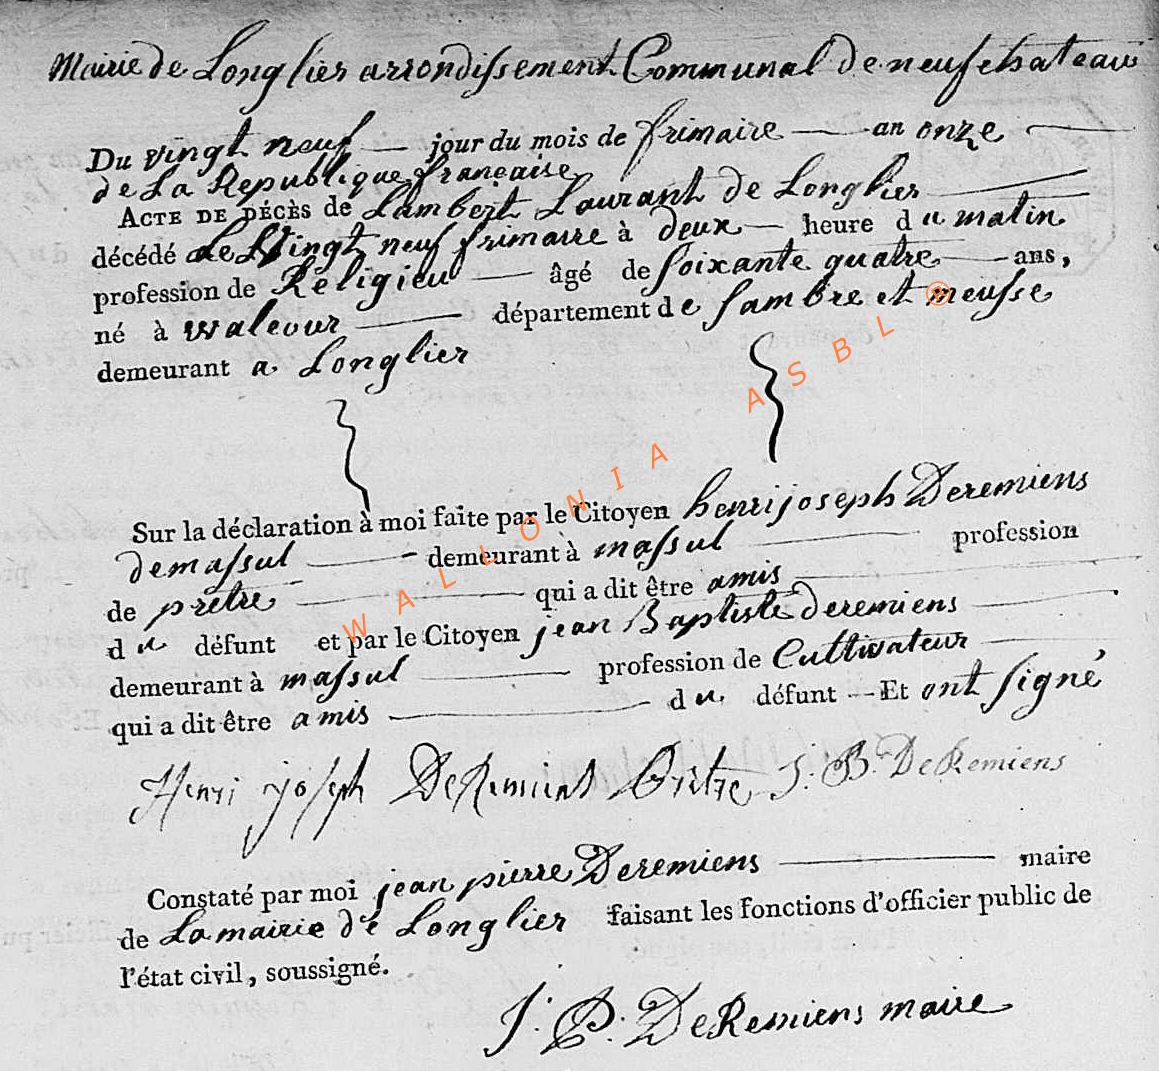 Mairie de Longlier arrondissement Communal de neufchateau
Du vingt neuf jour du mois de frimaire an onze
de La Republique française
ACTE DE DÉCÈS de Lambert Laurant de Longlier
décédé Le Vingt neuf frimaire à deux heure du matin
profession de Religieu âgé de soixante quatre ans,
né à walcour département de sambre et meusse
demeurant a Longlier
Sur la déclaration à moi faite par le Citoyen henri joseph Deremiens
de massul demeurant à massul profession
de prètre qui a dit être amis
du défunt et par le Citoyen jean Baptiste deremiens
demeurant à massul profession de Cultivateur
qui a dit être amis du défunt Et ont signé
Henri joseph DeRemiens J. B. DeRemiens
Constaté par moi jean pierre Deremiens maire
de La mairie de Longlier faisant les fonctions d'officier public de
l'état civil, soussigné.
J. P. DeRemiens maire
WALLONIA ASBL ®